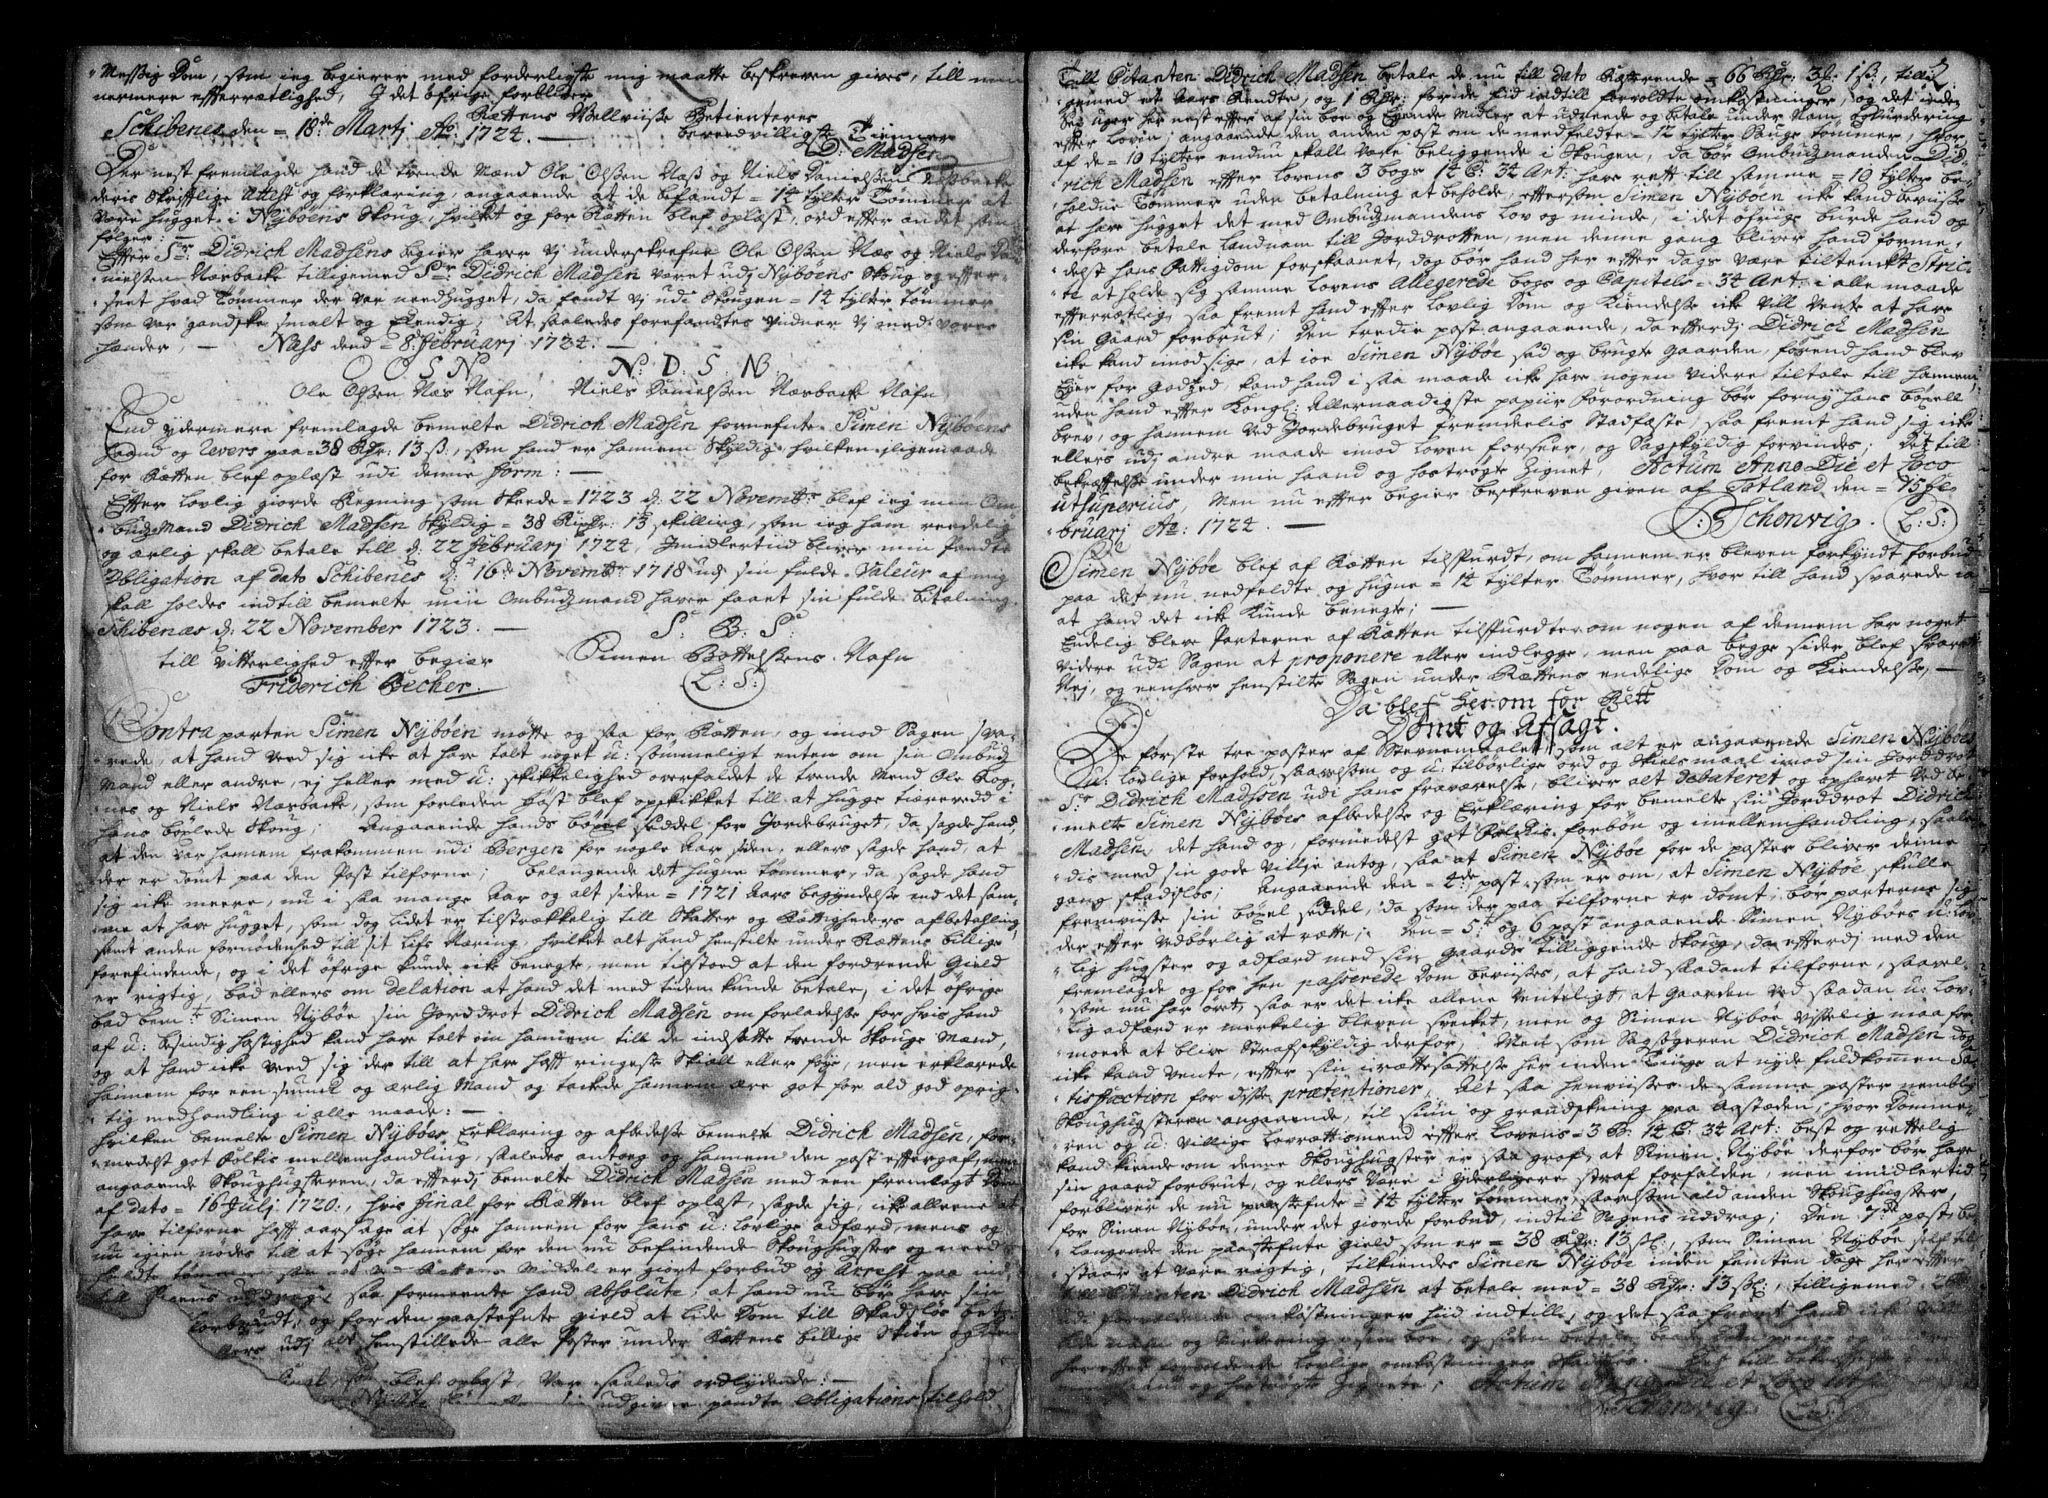 Messig Dom, som ieg begierer med forderligste mig maatte beskreven gives, till min
nermere efterretlighed, I det øfrige forblider
Rættens Vellviise Betienteres
Schibenes den = 18de Martj Ao: 1724. — beredvilligste Tienner
D: Madsen
Der nest fremlagde hand de trende Mænd Ole Olssen Næss og Niels Danielssen Narbacke
deris Skrifftlige Attest og forklaring, angaaende at de befandt = 14 tylter Tømmer at
være hugget i Nybøens Skoug, hvilket og for Rætten blef oplæst, ord efter andet som
følger: —
Efter Sr: Didrich Madsens begier haver vj underskrefne Ole Olssen Næs og Niels Da-
nielssen Narbacke tilligemed Sr: Didrich Madsen været udj Nybøens Skoug og efter-
seet hvad Tømmer der var needhugget, da fandt vj udi Skougen = 14 tylter tømmer
som var gandske smalt og Elendig, At saaledes forefandtes vidner vj med vores
hender, — Næss dend = 8 februarj 1724. —
O O S N N: D: S: N
Ole Olssen Næs Nafn, Niels Danielssen Narbacke Nafn
End ydermere fremlagde bemelte Didrich Madsen fornefnte Simen Nybøens
haand og Revers paa = 38 Rdr: 13 ß:, som hand er hannem skyldig, hvilken iligemaade
for Rætten blef oplæst udi denne form: —
Efter lovlig giorde Regning som skeede = 1723 d: 22 Novembr: blef ieg min Om-
budsmand Didrich Madsen skyldig = 38 Rixdr: 13 skilling, som ieg ham reedelig
og ærlig skall betale till d: 22 februarj 1724, Imidlertiid bliver min Pandte
Obligation af dato Schibenes d: 16de Novembr 1718 udj sin fulde Valeur af mig
skall holdes indtill bemelte min Ombudsmand haver faaet sin fulde betalning.
Schibenæs d: 22 November 1723. — S: B: S:
till vitterlighed efter begiær Simen Bottelssens Nafn
Friderich Becker. L: S:
Contra parten Simen Nybøen møtte og saa for Rætten, og imod Sagen sva-
rede, at hand ved sig ikke at have talt noget u: sømmeligt enten om sin Ombuds
Mand eller andre, ej heller med u: skikkelighed overfaldet de trende Mænd Ole Rog-
nes og Niels Narbacke, som forleden høst blef opskikket till at hugge tiæreved i
hans bøxlede Skoug; Angaaende hands bøxel seddel for Jordebruget, da sagde hand,
at den var hannem frakommen udi Bergen for nogle Aar siden, ellers sagde hand, at
der er dømt paa den Post tilforne; belangende det hugne tømmer, da sagde hand
sig ikke meere, nu i saa mange Aar og alt siden = 1721 Aars begyndelse end det sam-
me at have hugget, som dog lidet er tilstrækkelig till Skatter og Rættigheders afbetahling
samt anden fornødenhed till sit lifs Næring, hvilket alt hand henstilte under Rættens billige
forefindende, og i det øfrige kunde ikke benegte, men tilstoed at den fordrende Gield
er rigtig, bad ellers om Delation at hand det med tiden kunde betale, i det øfrige
bad bemte Simen Nybøe sin Jorddrot Didrich Madsen om forladelse for hvis hand
af u: besindig hastighed kand have talt om hannem till de indsatte trende Skouge Mænd,
og at hand ikke ved sig der till at have hafft ringeste skiæll eller føye, men erklærede
hannem for een smuk og ærlig Mand og tackede hannem ære got for ald god oprig-
tig medhandling i alle maade: —
hvilken bemelte Simen Nybøes Erklæring og afbedelse bemelte Didrich Madsen, for-
medelst got folkis mellemhandling, saaledes antog og hannem den post eftergaf, men
angaaende Skoughugsteren, da efterdj bemelte Didrich Madsen med een fremlagt Dom
af dato = 16 Julj: 1720., hvis final for Rætten blef oplæst, sagde sig, ikke alleene at
have tilforne hafft aarsage at søge hannem for hans u: lovlige adfærd, mens og
nu igien nødes till at søge hannem for den nu befindende Skoughugster og need-
feldte tømmer som nu ved Rættens Middel er giort forbud og Arrest paa ind-
till Sagens uddrag, saa formeente hand Absolute, at hand nu bør have sin
forbrudt, og for den paastefnte gield at lide Dom till skadesløs beta-
udj alt henstillede alle Poster under Rættens billige Skiøn og Kien
blef oplæst, var saaledis ordlydende: —
udgivne pandte Obligations tilhold
Till Citanten Didrich Madsen betale de nu till dato resterende = 66 Rdr: 3 ß: 1 ß:, tilli-
gemed et Aars Rendte, og 1 Rdr: for ide tid indtill forvoldte omkostninger, og det inden
der efter her nest efter af sin boe og Eyende midler at udreede og betale under Nam og Vurdering
efter Loven; angaaende den anden post om de needfeldte = 12 tylter Sauge tømmer, hvor
af de = 10 tylter endnu skall være beliggende i Skougen, da bør Ombudsmanden Did-
rich Madsen efter Lovens 3 bogs 14 C: 34 Art: have rett till samme = 10 tylter be-
holdne Tømmer uden betalning at beholde, eftersom Simen Nybøen ikke kand beviise
at have hugget det med Ombudsmandens Lov og minde, i det øfrige burde hand og
derfore betale Landnam till Jorddrotten, men denne gang bliver hand forme-
delst hans fattigdom forskaanet, dog bør hand her efter dags være tiltenckt stric-
te at holde sig samme Lovens Allegerede bogs og Capitels = 34 Art: i alle maade
efterrettlig, saa fremt hand efter Lovlig Dom og Kiendelse ikke vill vente at have
sin Gaard forbrut; den tredie post angaaende, da efterdj Didrich Madsen
ikke kand imodsige, at joe Simen Nybøe sad og brugte gaarden, førend hand blev
Eyer for godsed, kand hand i saa maade ikke have nogen videre tiltale till hannem,
uden hand efter Kongl: Allernaadigste papiir forordning bør forny hans bøxell
brev, og hannem ved Jordebruget fremdeelis stadfæste, saa fremt hand sig ikke
ellers udj andre maade imod Loven forseer, og Sagskyldig forvindes; Det till
bekræfftelse under min haand og hostrøgte Zignet, Actum Anno Die et Loco
ut superius, Men nu efter begier beskreven given af Tatland den = 15 fe-
bruarj Ao: 1724. — S: Schonvig. L: S:
Simen Nybøe blef af Rætten tilspurdt, om hannem er bleven forkyndt forbud
paa det nu nedfeldte og hugne = 14 tylter Tømmer, hvor till hand svarede ja
at hand det ikke kunde benegte; —
Endelig bleve Parterne af Rætten tilspurdte om nogen af dennem har noget
videre udi Sagen at proponere eller indlegge, men paa begge sider blef svaret
Nej, og eenhver henstilte Sagen under Rættens endelige Dom og Kiendelse, —
Da blef herom for Rett
Dømt og Afsagt.
De første tre poster af Stevnemaalet som alt er angaaende Simen Nybøes
u: lovlige forhold, saavelsom og u: tilbørlige ord og skiels maal imod sin Jorddrot
Sr Didrich Madssen udi hans fraværelse, bliver alt debateret og ophævet ved be-
melte Simen Nybøes afbedelse og Erklæring for bemelte sin Jorddrot Didrich
Madsen, det hand og, formedelst got folckis forbøn og imellemhandling, saale-
dis med sin gode villje antog, saa at Simen Nybøe for de poster bliver denne
gang skadisløs; Angaaende den = 4de post som er om, at Simen Nybøe skulle
fremviise sin bøxel seddel, da som der paa tilforne er dømt, bør parterne sig
der efter vedbørlig at rætte; Den = 5te og 6 post angaaende Simen Nybøes u: lov-
lig hugster og adfærd med sin gaards tilliggende Skoug, da efterdj med den
fremlagde og for hen passerede Dom beviises, at hand saadant tilforne, saavel-
som nu har øvet, saa er det ikke allene venteligt, at Gaarden ved saadan u: lov-
lig adfærd er merkelig bleven svecket, men og Simen Nybøe visselig maa for-
moede at blive strafskyldig derfor; Men som Sagsøgeren Didrich Madsen dog
ikke kand vente, efter sin irættesættelse her inden Tinge at nyde fuldkommen Sa-
tisfaction for disse prætentioner, Alt saa henviises de samme poster nemblig
Skoughugsteren angaaende, til siun og grandskning paa Aastæden, hvor Domme-
ren og u: villige Lovrættismend efter Lovens = 3 B: 14 C: 34 Art: best og rettelig
kand kiende om denne Skoughugster er saa grof, at Simen Nybøe derfor bør have
sin gaard forbrut, og ellers være i yderligere straf forfalden, men imidlertid
forbliver de nu paastefnte = 14 tylter tømmer, saavelsom ald anden Skoughugster,
for Simen Nybøe, under det giorde forbud, indtil Sagens uddrag; Den 7de post be-
langende den paastefnte gield som er = 38 Rdr: 13 ßl:, som Simen Nybøe self till
staar at være rigtig, tilkiendes Simen Nybøe inden femten dage her efter
till Citanten Didrich Madsen at betale med = 38 Rdr: 13 ßl:, tilligemed
forvoldende omkostninger hiid indtill, og det saa fremt hand ikke vill
lide nam og Vurdering i sin boe, og siden betale baade
her efter forvoldende lovlige omkostninger skadisløs. Det till bekræfftelse under
haand og hostrøgte Zignete, Actum Anno Die et Loco ut supra
S: Schonvig L: S: